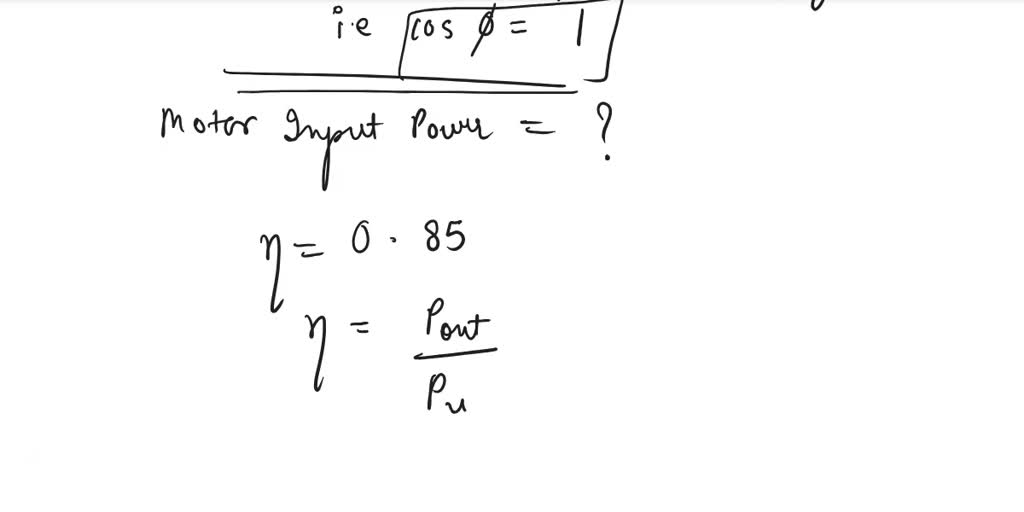 i.e cos ϕ = 1
Motor Input Power = ?
η = 0.85
η = Pout
Pu